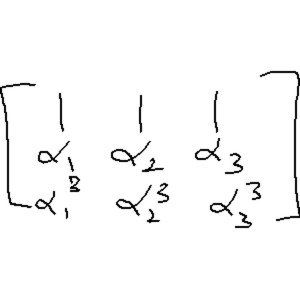 1 1 1
α₁ α₂ α₃
α₁³ α₂³ α₃³